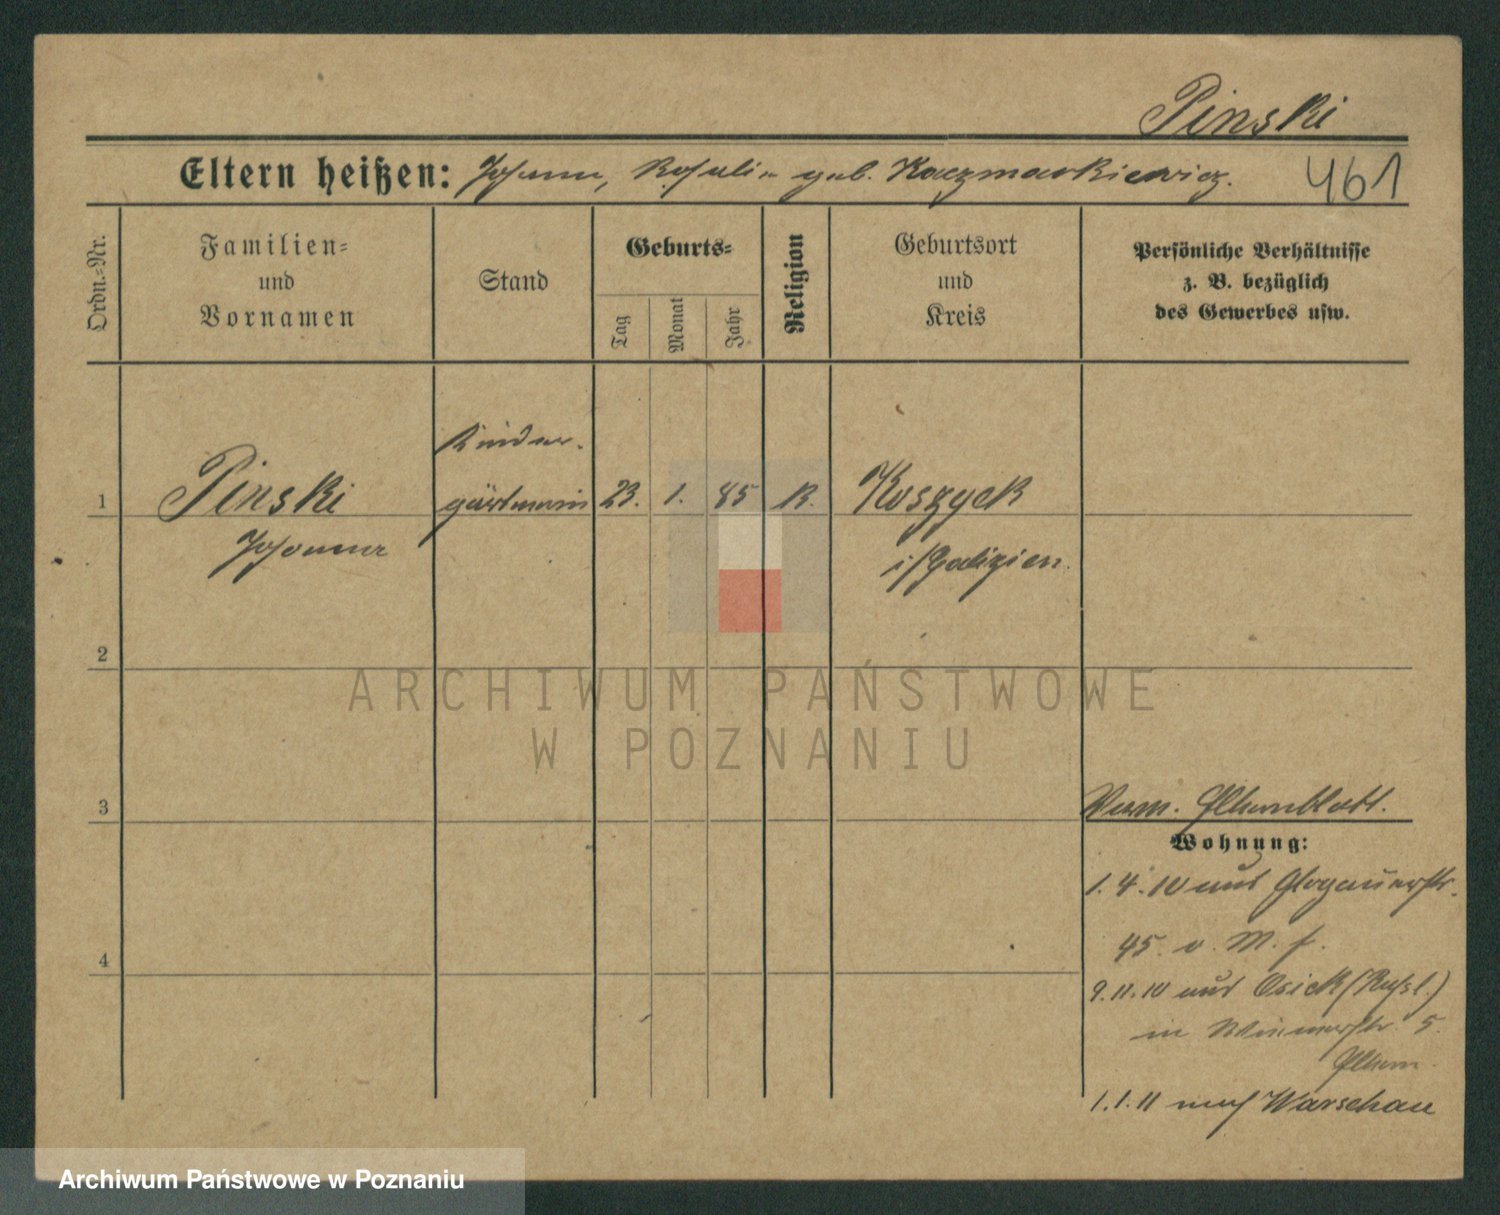 Pinski
Eltern heißen: Johann, Rosalie geb. Kaczmarkiewicz.
461
Ordn.=Nr.
Familien=
und
Vornamen
Stand
Geburts=
Tag
Monat
Jahr
Religion
Geburtsort
und
Kreis
Persönliche Verhältnisse
z. B. bezüglich
des Gewerbes usw.
Kinder-
1 Pinski gärtnerin 23. 1. 85 K. Koszyck
Johanna i/Galizien.
2
ARCHIWUM PAŃSTWOWE
W POZNANIU
3
Verm. Elternblatt.
Wohnung:
1. 4. 10 aus Glogauerstr.
45. v. M. f.
4
9. 11. 10 aus Osiek (Russl.)
in 5.
Eltern
1. 1. 11 nach Warschau
Archiwum Państwowe w Poznaniu